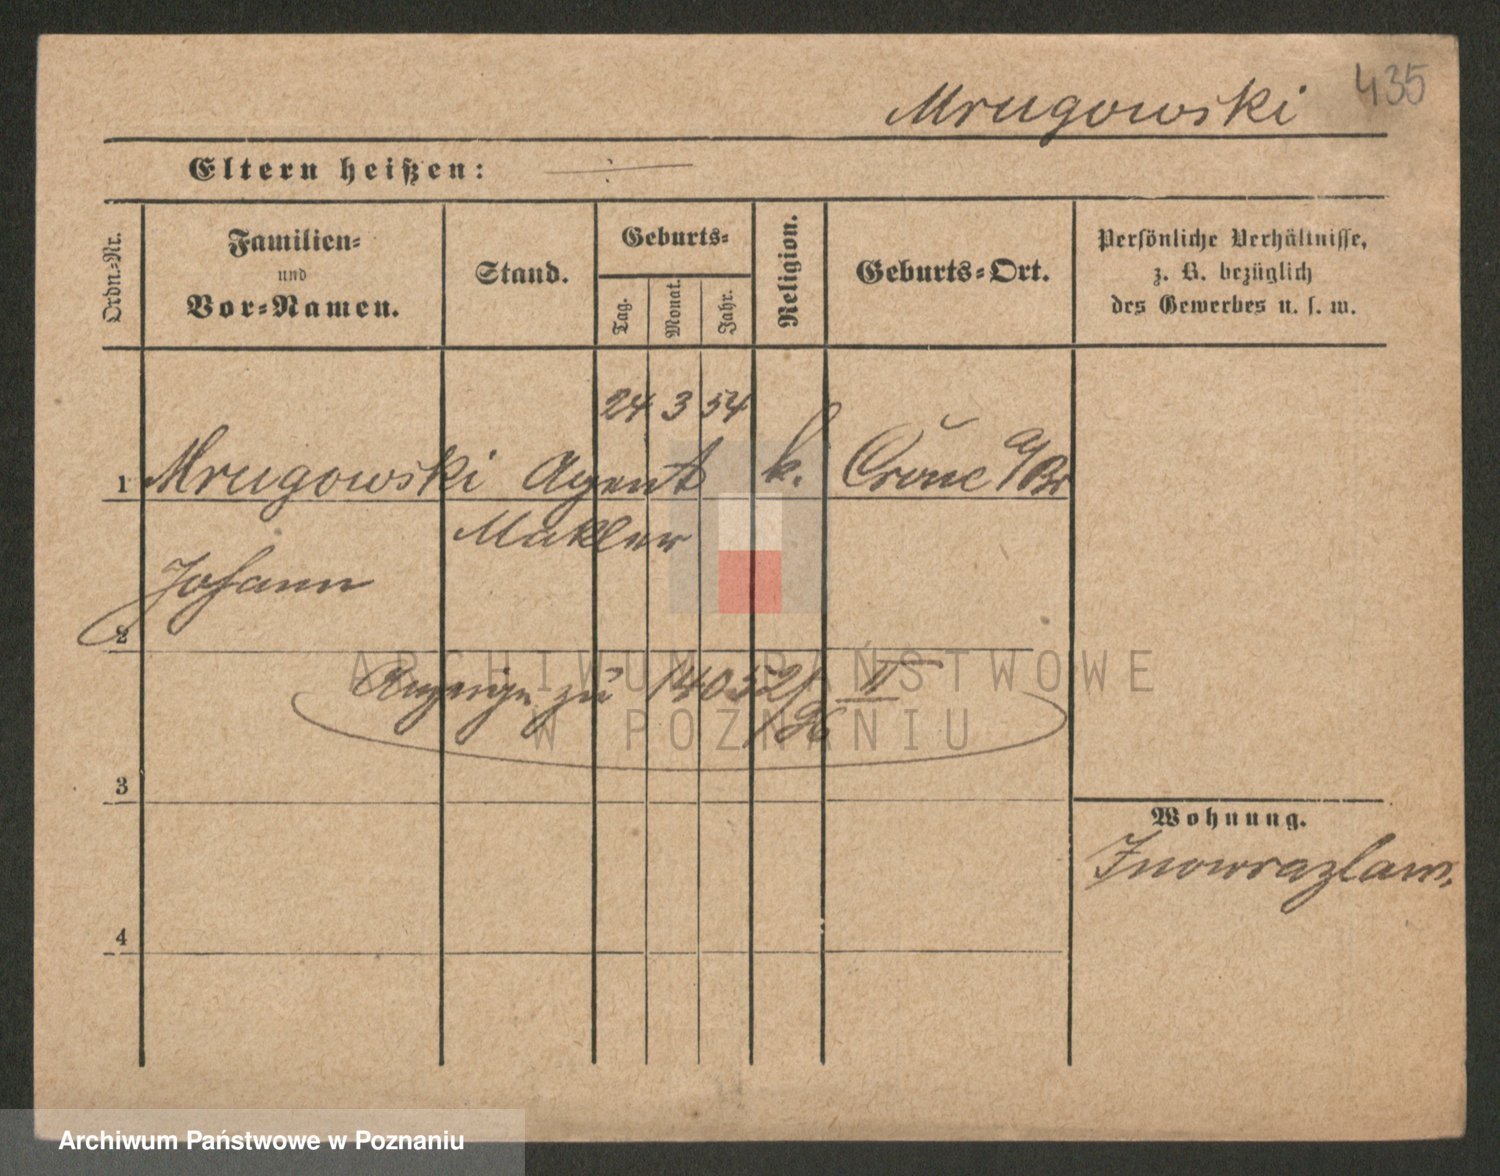 Mrugowski 435
Eltern heißen:
Ordn.-Nr.
Familien-
und
Vor-Namen.
Stand.
Geburts-
Tag.
Monat.
Jahr.
Religion.
Geburts-Ort.
Persönliche Verhältnisse,
z. B. bezüglich
des Gewerbes u. s. w.
24 3 54
1 Mrugowski Agent k. Crone a/Br
Makler
Johann
2
Anzeige zu 14052/96 II
3
4
Wohnung.
Inowrazlaw.
ARCHIWUM PAŃSTWOWE
W POZNANIU
Archiwum Państwowe w Poznaniu